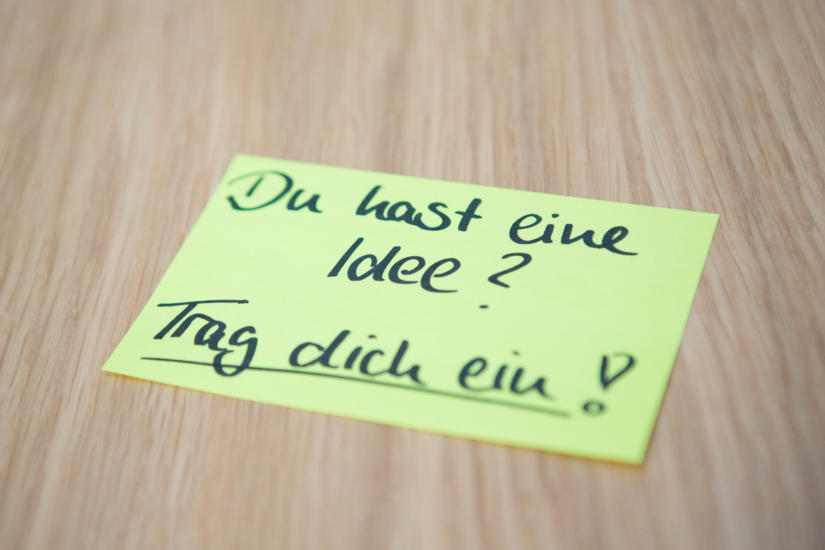 Du hast eine
Idee?
Trag dich ein!